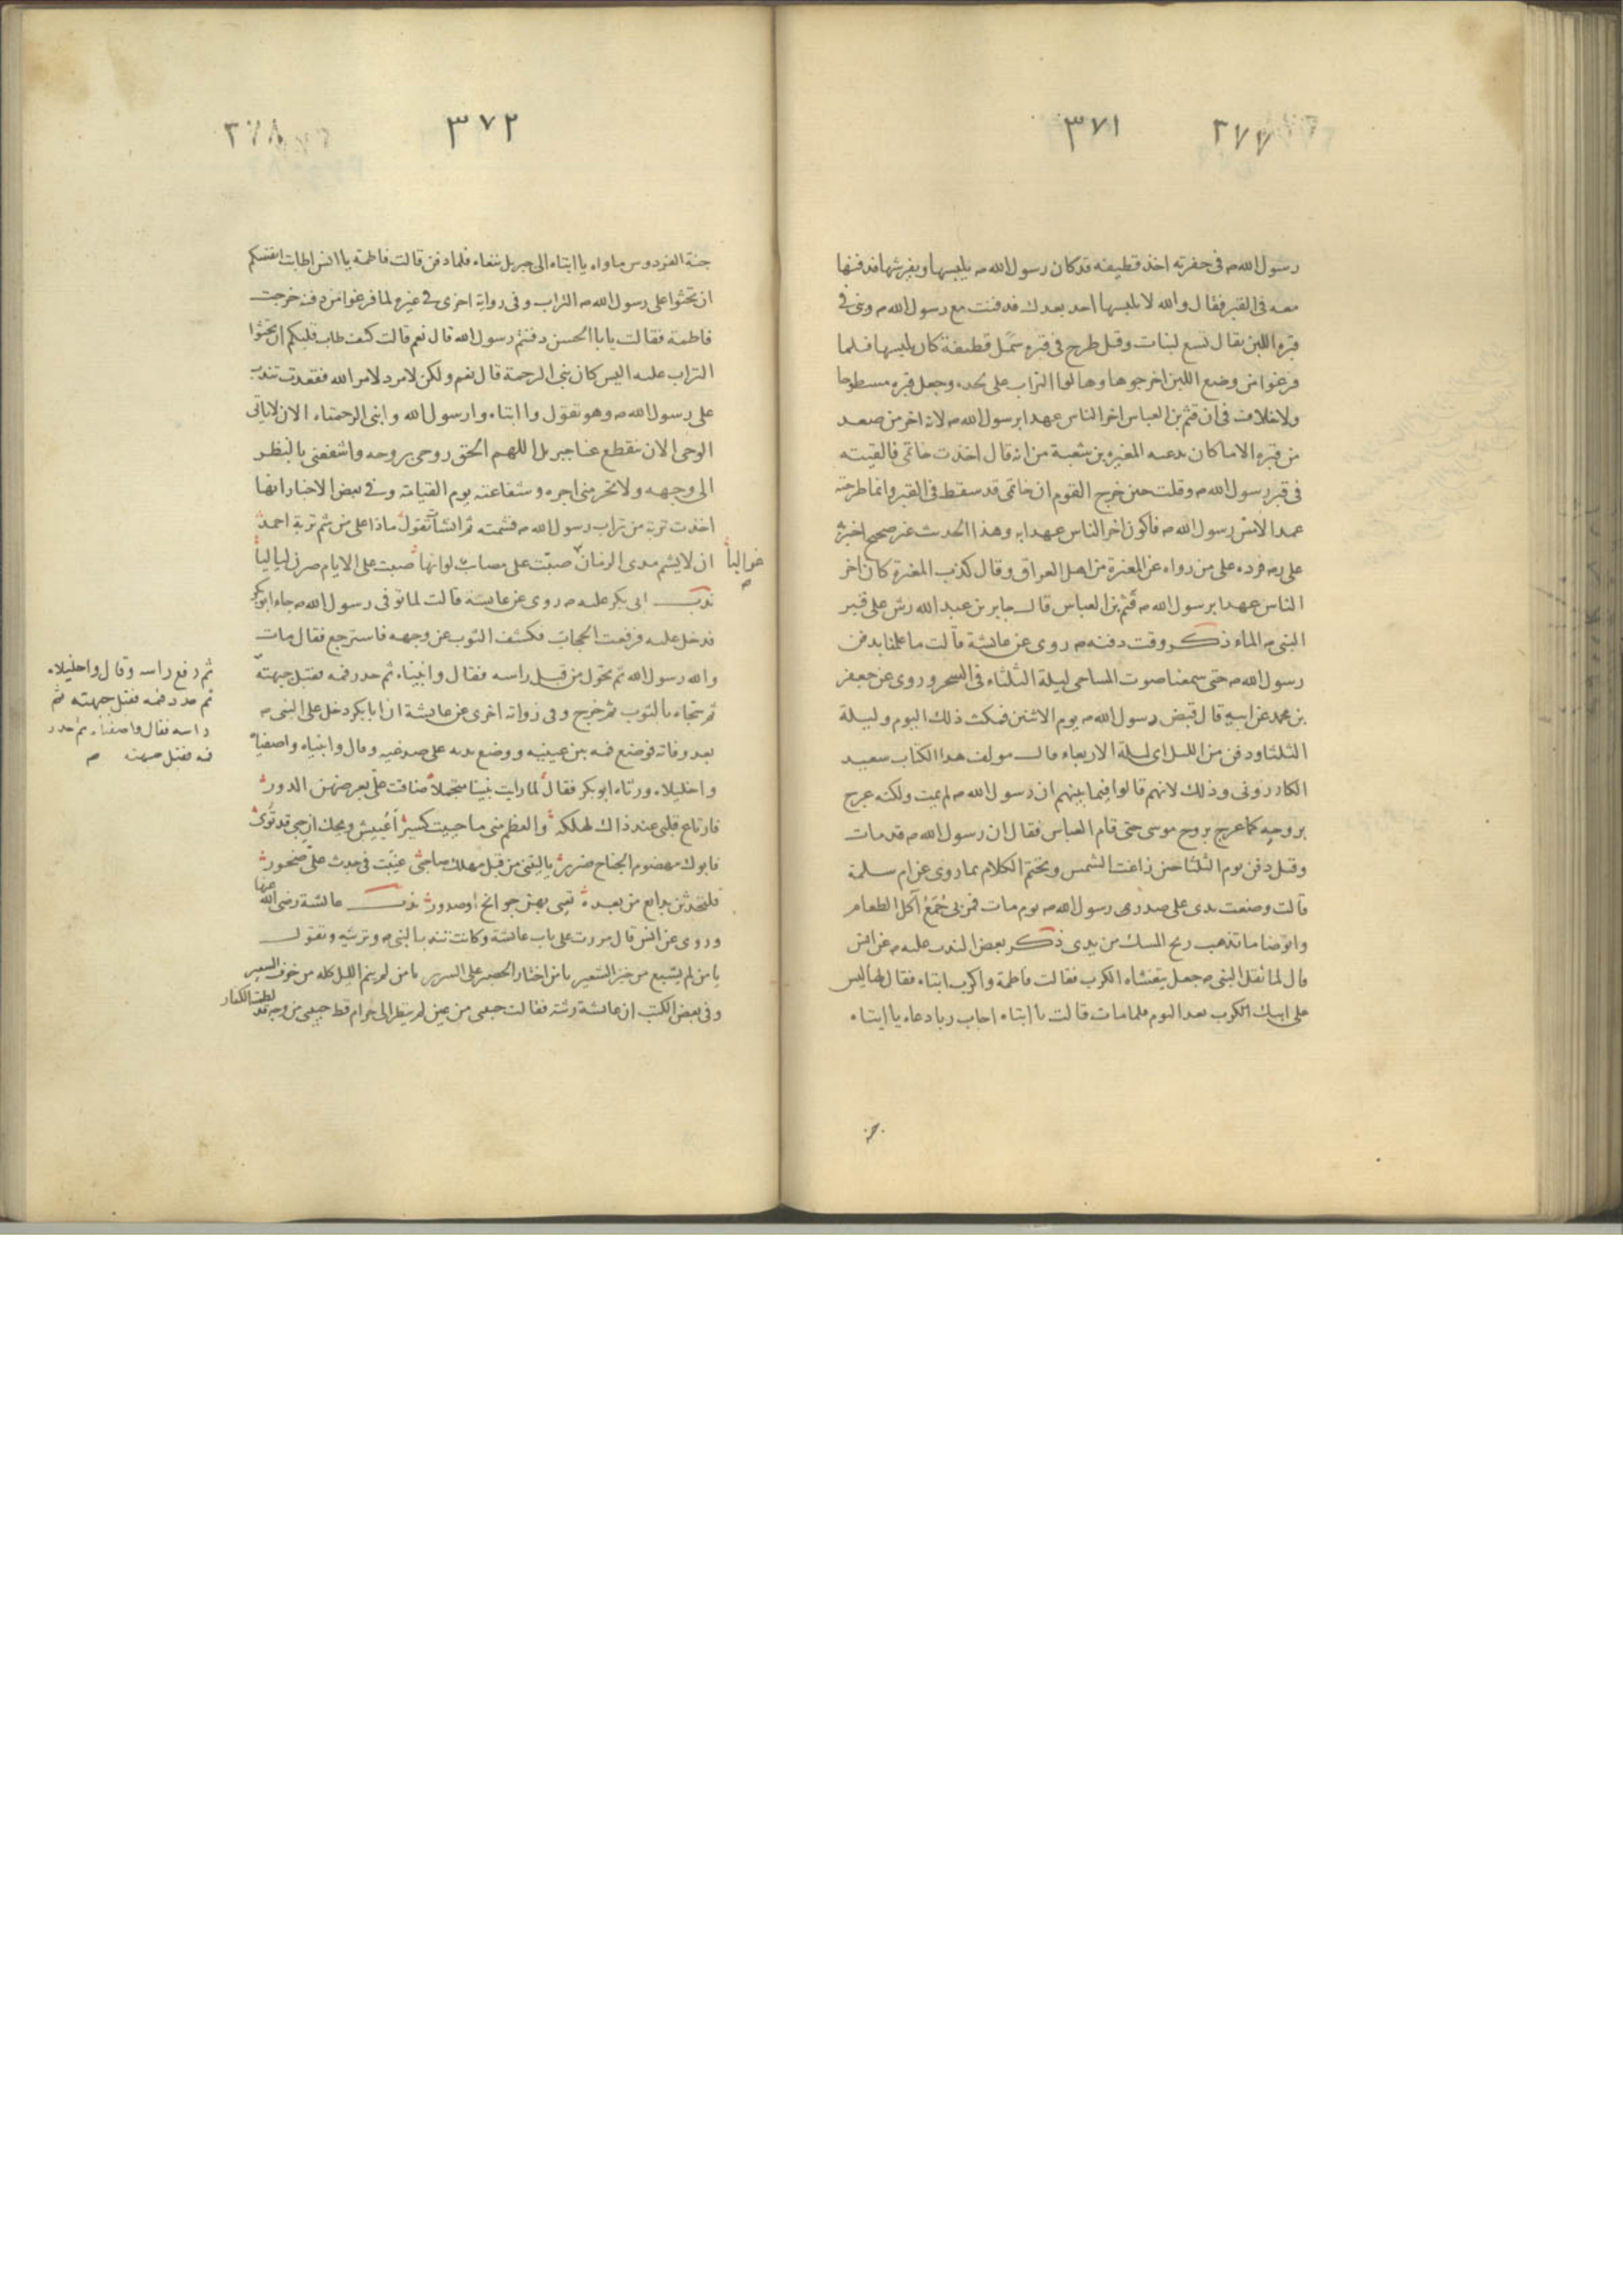 ٣٧١ ٣٧٧
رسول الله صم في حفرته اخذ قطيفه قد كان رسول الله صم يلبسها ويفرشها فدفنها
معه في القبر فقال والله لا يلبسها احد بعدك فدفنت مع رسول الله صم وبنى في
قبره اللبن يقال تسع لبنات وقيل طرح في قبره سمل قطيفة كان يلبسها فلما
فرغوا من وضع اللبن اخرجوها وهالوا التراب على لحده وجعل قبره مسطوحا
ولا خلاف في ان قثم بن العباس اخر الناس عهدا برسول الله صم لانه اخر من صعد
من قبره الا ما كان يدعيه المغيره بن شعبة من انه قال اخذت خاتمي فالقيته
في قبر رسول الله صم وقلت حين خرج القوم ان خاتمي قد سقط في القبر وانما طرحته
عمدا لامس رسول الله صم فاكون اخر الناس عهدا به وهذا الحديث غير صحيح اخبر
على من رواه عن المغيرة من اهل العراق وقال كذب المغيرة كان اخر
الناس عهدا برسول الله صم قثم بن العباس قال جابر بن عبد الله رش على قبر
النبي صم الماء ذكر وقت دفنه صم روى عن عائشة قالت ما علمنا بدفن
رسول الله صم حتى سمعنا صوت المساحي ليلة الثلثاء في السحر وروى عن جعفر
بن محمد عن ابيه قال قبض رسول الله صم يوم الاثنين فمكث ذلك اليوم وليلة
الثلثا ودفن من الليل اى ليلة الاربعاء قال مولف هذا الكتاب سعيد
الكازرونى وذلك لانهم قالوا فيما بينهم ان رسول الله صم لم يمت ولكنه عرج
بروحه كما عرج بروح موسى حتى قام العباس فقال ان رسول الله صم قد مات
وقيل دفن يوم الثلثا حين زاغت الشمس ويختم الكلام بما روى عن ام سلمة
قالت وضعت يدى على صدر رسول الله صم يوم مات فمر بى جمع آكل الطعام
واتوضا ما تذهب ريح المسك من يدى ذكر بعض الندب عليه صم عن انس
قال لما ثقل النبي صم جعل يتغشاه الكرب فقالت فاطمة واكرب ابتاه فقال لها ليس
على ابيك الكرب بعد اليوم فلما مات قالت يا ابتاه اجاب ربا دعاه يا ابتاه
٣٧٢ ٣٧٨
جنة الفردوس ماواه يا ابتاه الى جبريل ننعاه فلما دفن قالت فاطمة يا انس اطابت انفسكم
ان تحثوا على رسول الله صم التراب وفى رواية اخرى في غيره لما فرغوا من دفنه خرجت
فاطمة فقالت يا با الحسن دفنتم رسول الله قال نعم قالت كيف طاب قلبكم ان تحثوا
التراب عليه اليس كان نبى الرحمة قال نعم ولكن لا مرد لامر الله فقعدت تندب
على رسول الله صم وهو تقول وا ابتاه وا رسول الله وا نبى الرحمتاه الان لا ياتى
الوحى الان ينقطع عنا جبريل اللهم الحق روحى بروحه واشفعنى بالنظر
الى وجهه ولا تحرمنى اجره وشفاعته يوم القيامة وفى بعض الاخبار انها
اخذت تربة من تراب رسول الله صم فشمته ثم انشات تقول ماذا على من شم تربة احمد
ان لا يشم مدى الزمان غواليا صبت على مصايب لو انها صبت على الايام صرن لياليا
ندب ابى بكر عليه صم روى عن عايشة قالت لما توفى رسول الله صم جاء ابو بكر
فدخل عليه فرفعت الحجاب فكشف الثوب عن وجهه فاسترجع فقال مات
والله رسول الله ثم تحول من قبل راسه فقال وانبياه ثم حدر فمه فقبل جبهته
ثم رفع راسه وقال واخليلاه
ثم حدر فمه فقبل جبهته ثم
راسه فقال واصفياه ثم حدر
فمه فقبل جبهته صم
ثم سجاه بالثوب ثم خرج وفى رواية اخرى عن عايشة ان ابا بكر دخل على النبى صم
بعد وفاته فوضع فمه بين عينيه ووضع يديه على صدغيه وقال وانبياه واصفياه
واخليلاه ورثاه ابو بكر فقال لما رايت نبينا متجملا ضاقت على بعرضهن الدور
فارتاع قلبى عند ذاك لهلكه والعظم منى ما حييت كسير اعتيق ويحك ان حبى قد ثوى
فابوك مهضوم الجناح ضرير يا ليتنى من قبل مهلك صاحبى غيبت فى جدث على صخور
فلتحدثن بدايع من بعده تعيى بهن جوانح وصدور ندب عائشة رضى الله عنها
وروى عن انس قال مررت على باب عائشة وكانت تندب النبى صم وترثيه وتقول
يا من لم يشبع من خبز الشعير يا من اختار الحصير على السرير يا من لم ينم الليل كله من خوف السعير
وفى بعض الكتب ان عائشة رثته فقالت من عين لم ينظر الى حرام قط من وجه لطمته الكفار